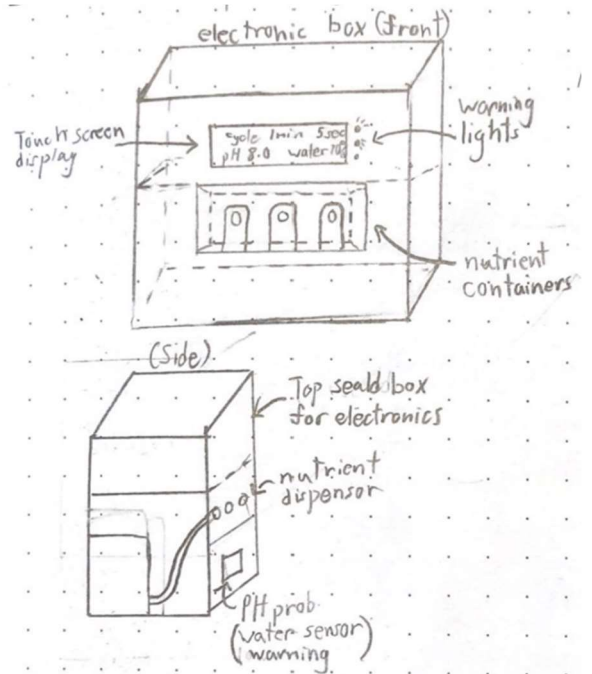 electronic box (front)
Touch screen
display
cycle 1min 5sec
pH 8.0 water
warning
lights
nutrient
containers
(Side)
Top seald box
for electronics
nutrient
dispensor
PH prob
(water sensor)
(warning